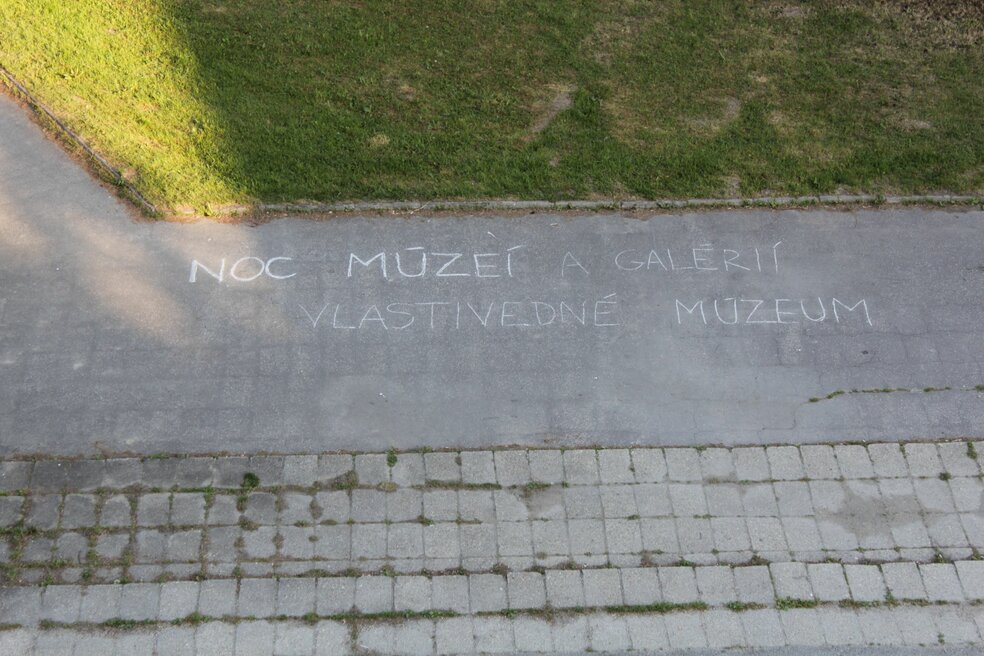 NOC MÚZEÍ A GALÉRIÍ
VLASTIVEDNÉ MÚZEUM